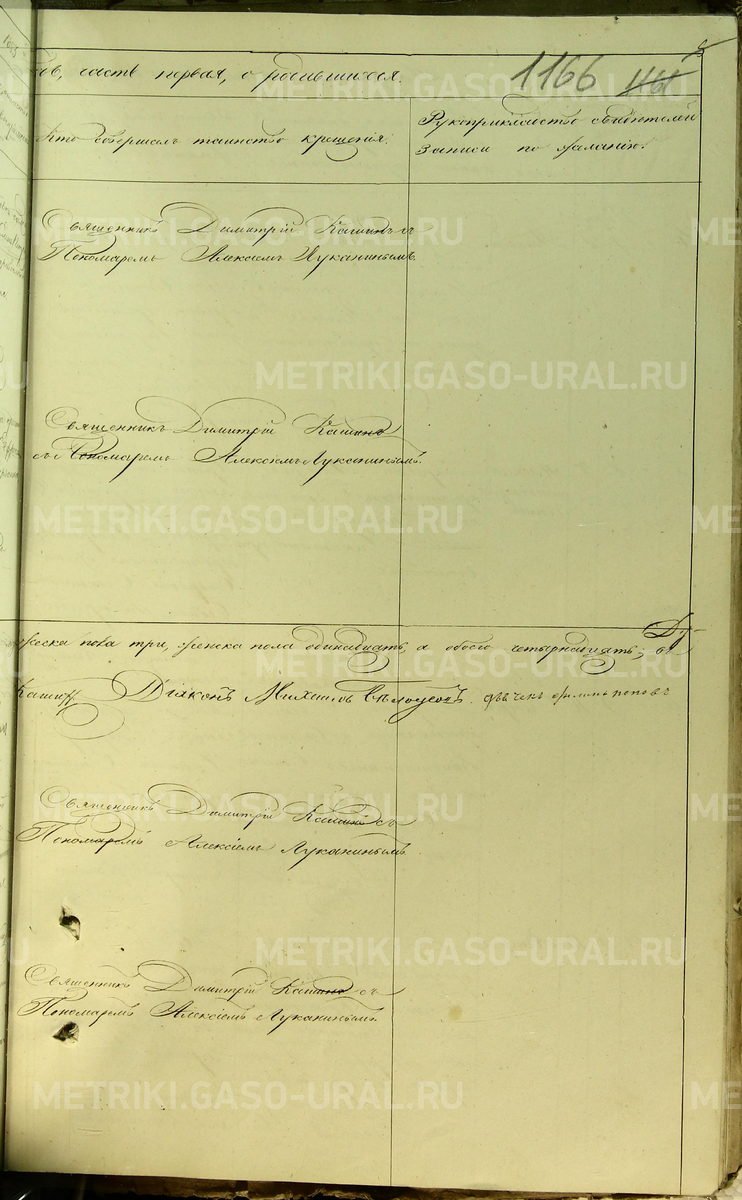 въ, часть первая, о родившихся.
1166
1161
Кто совершалъ таинство крещенія.
Рукоприкладство свидѣтелей
записи по желанію.
Священникъ Димитрій Кашинъ съ
Пономаремъ Алексіемъ Луканинымъ.
Священникъ Димитрій Кашинъ
съ Пономаремъ Алексіемъ Луканинымъ.
жеска пола три, женска пола одинадцать, а обоего четырнадцать; Ду-
Кашинъ Діяконъ Михаилъ Бѣлоусовъ. поповъ
Священникъ Димитрій Кашинъ съ
Пономаремъ Алексіемъ Луканинымъ.
Священникъ Димитрій Кашинъ съ
Пономаремъ Алексіемъ Луканинымъ.
METRIKI.GASO-URAL.RU